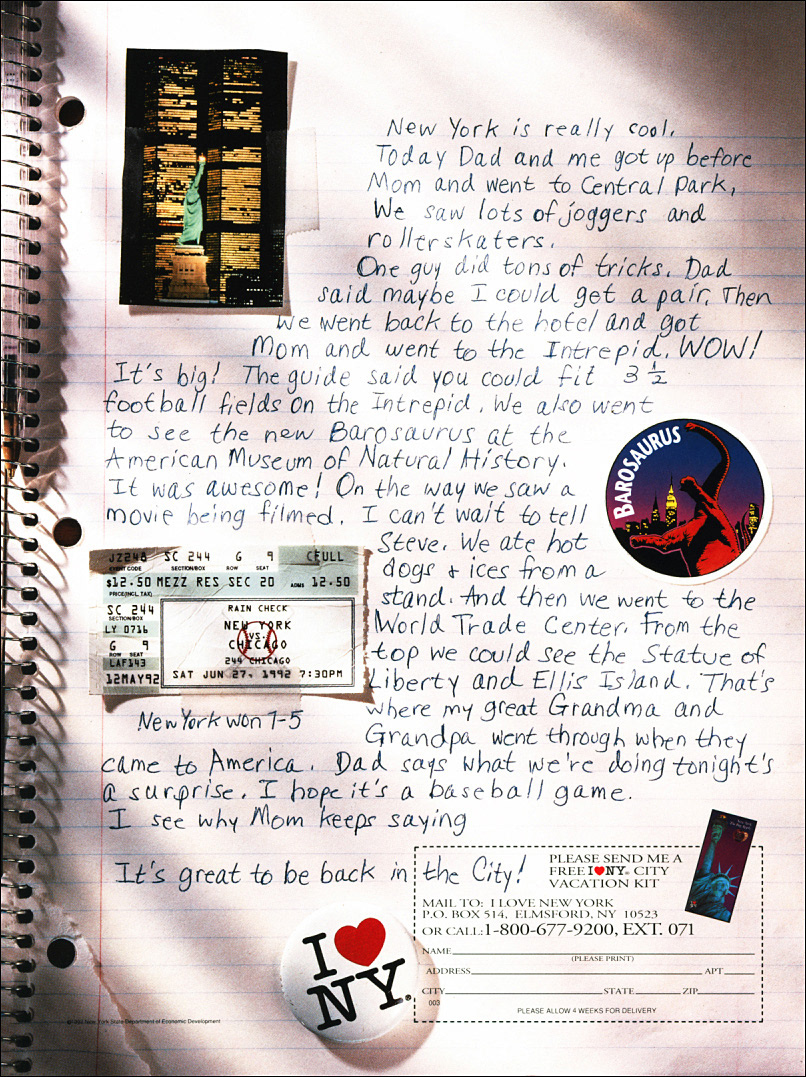 New York is really cool.
Today Dad and me got up before
Mom and went to Central Park.
We saw lots of joggers and
rollerskaters.
One guy did tons of tricks. Dad
said maybe I could get a pair. Then
we went back to the hotel and got
Mom and went to the Intrepid. WOW!
It's big! The guide said you could fit 3 1/2
football fields on the Intrepid. We also went
to see the new Barosaurus at the
American Museum of Natural History.
It was awesome! On the way we saw a
movie being filmed. I can't wait to tell
Steve. We ate hot
dogs & ices from a
stand. And then we went to the
World Trade Center. From the
top we could see the Statue of
Liberty and Ellis Island. That's
where my great Grandma and
Grandpa went through when they
came to America. Dad says what we're doing tonight's
a surprise. I hope it's a baseball game.
I see why Mom keeps saying
It's great to be back in the City!
BAROSAURUS
JZ224B SC 244 G 9 CFULL
EVENT CODE SECTION/BOX ROW SEAT
$12.50 MEZZ RES SEC 20 ADMS 12.50
PRICE(INCL. TAX)
SC 244
SECTION/BOX
LY 0716
G 9
ROW SEAT
LAF143
12MAY92
RAIN CHECK
NEW YORK
VS.
CHICAGO
244 CHICAGO
SAT JUN 27, 1992 7:30PM
New York won 7-5
PLEASE SEND ME A
FREE I♥NY® CITY
VACATION KIT
MAIL TO: I LOVE NEW YORK
P.O. BOX 514, ELMSFORD, NY 10523
OR CALL: 1-800-677-9200, EXT. 071
NAME
(PLEASE PRINT)
ADDRESS APT.
CITY STATE ZIP
003
PLEASE ALLOW 4 WEEKS FOR DELIVERY
I♥
NY®
New York State Department of Economic Development